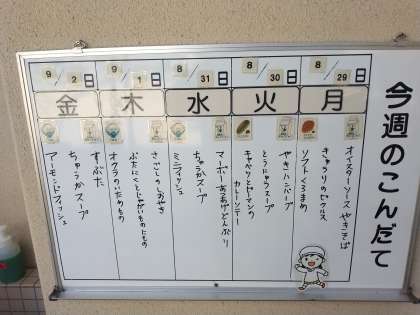 今週のこんだて
8/29日
月
オイスターソースやきそば
きゅうりのピクルス
ソフトくろまめ
8/30日
火
やきハンバーグ
とうにゅうスープ
キャベツとピーマンの
カレーソテー
8/31日
水
マーボーあつあげどんぶり
ちゅうかスープ
ミニフィッシュ
9/1日
木
さばのしおやき
ぶたにくとじゃがいものにもの
オクラのいためもの
9/2日
金
すぶた
ちゅうかスープ
アーモンドフィッシュ